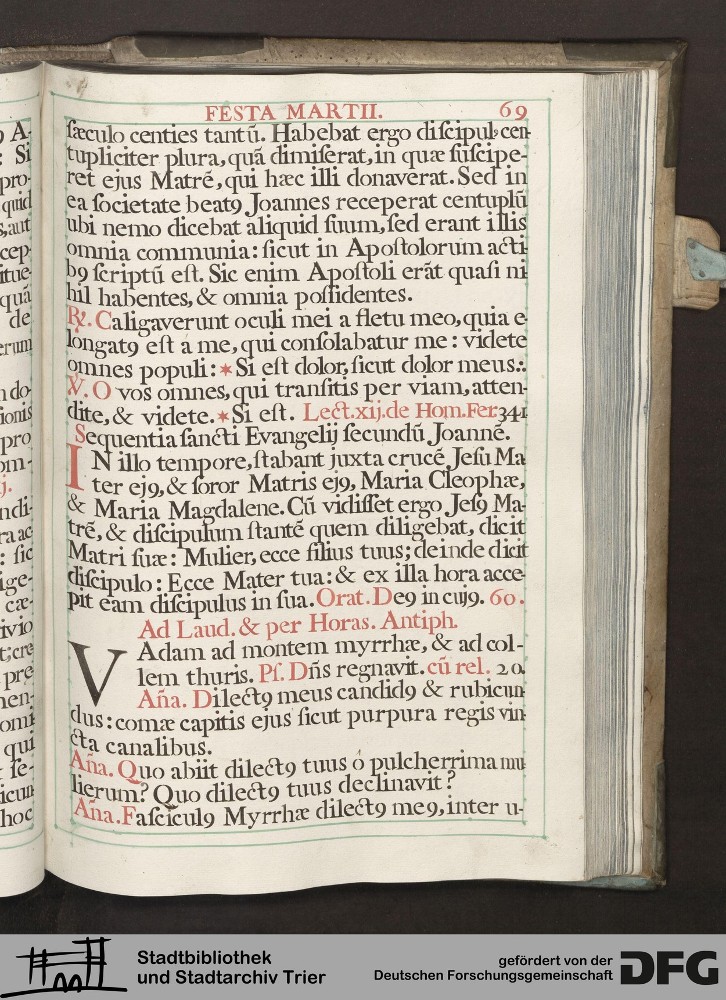 FESTA MARTII. 69
ſæculo centies tantũ. Habebat ergo diſcipulꝰ cen-
tupliciter plura, quã dimiſerat, in quæ ſuſcipe-
ret ejus Matrẽ, qui hæc illi donaverat. Sed in
ea ſocietate beatꝰ Joannes receperat centuplũ
ubi nemo dicebat aliquid ſuum, ſed erant illis
omnia communia: ſicut in Apoſtolorum acti-
bꝰ ſcriptũ eſt. Sic enim Apoſtoli erãt quaſi ni
hil habentes, & omnia poſſidentes.
℟. Caligaverunt oculi mei a fletu meo, quia e-
longatꝰ eſt a me, qui conſolabatur me: videte
omnes populi: ✶ Si eſt dolor, ſicut dolor meus:.
℣. O vos omnes, qui tranſitis per viam, atten-
dite, & videte. ✶ Si eſt. Lect. xij. de Hom. Fer. 341
Sequentia ſancti Evangelij ſecundũ Joannẽ.
IN illo tempore, ſtabant juxta crucẽ Jeſu Ma
ter ejꝰ, & ſoror Matris ejꝰ, Maria Cleophæ,
& Maria Magdalene. Cũ vidiſſet ergo Jeſꝰ Ma-
trẽ, & diſcipulum ſtantẽ quem diligebat, dicit
Matri ſuæ: Mulier, ecce filius tuus; deinde dicit
diſcipulo: Ecce Mater tua: & ex illa hora acce-
pit eam diſcipulus in ſua. Orat. Deꝰ in cujꝰ. 60.
Ad Laud. & per Horas. Antiph.
VAdam ad montem myrrhæ, & ad col-
lem thuris. Pſ. Dñs regnavit. cũ rel. 20.
Aña. Dilectꝰ meus candidꝰ & rubicun
dus: comæ capitis ejus ſicut purpura regis vin-
cta canalibus.
Aña. Quo abiit dilectꝰ tuus ó pulcherrima mu
lierum? Quo dilectꝰ tuus declinavit?
Aña. Faſciculꝰ Myrrhæ dilectꝰ meꝰ, inter u-
Stadtbibliothek
und Stadtarchiv Trier
gefördert von der
Deutschen Forschungsgemeinschaft
DFG